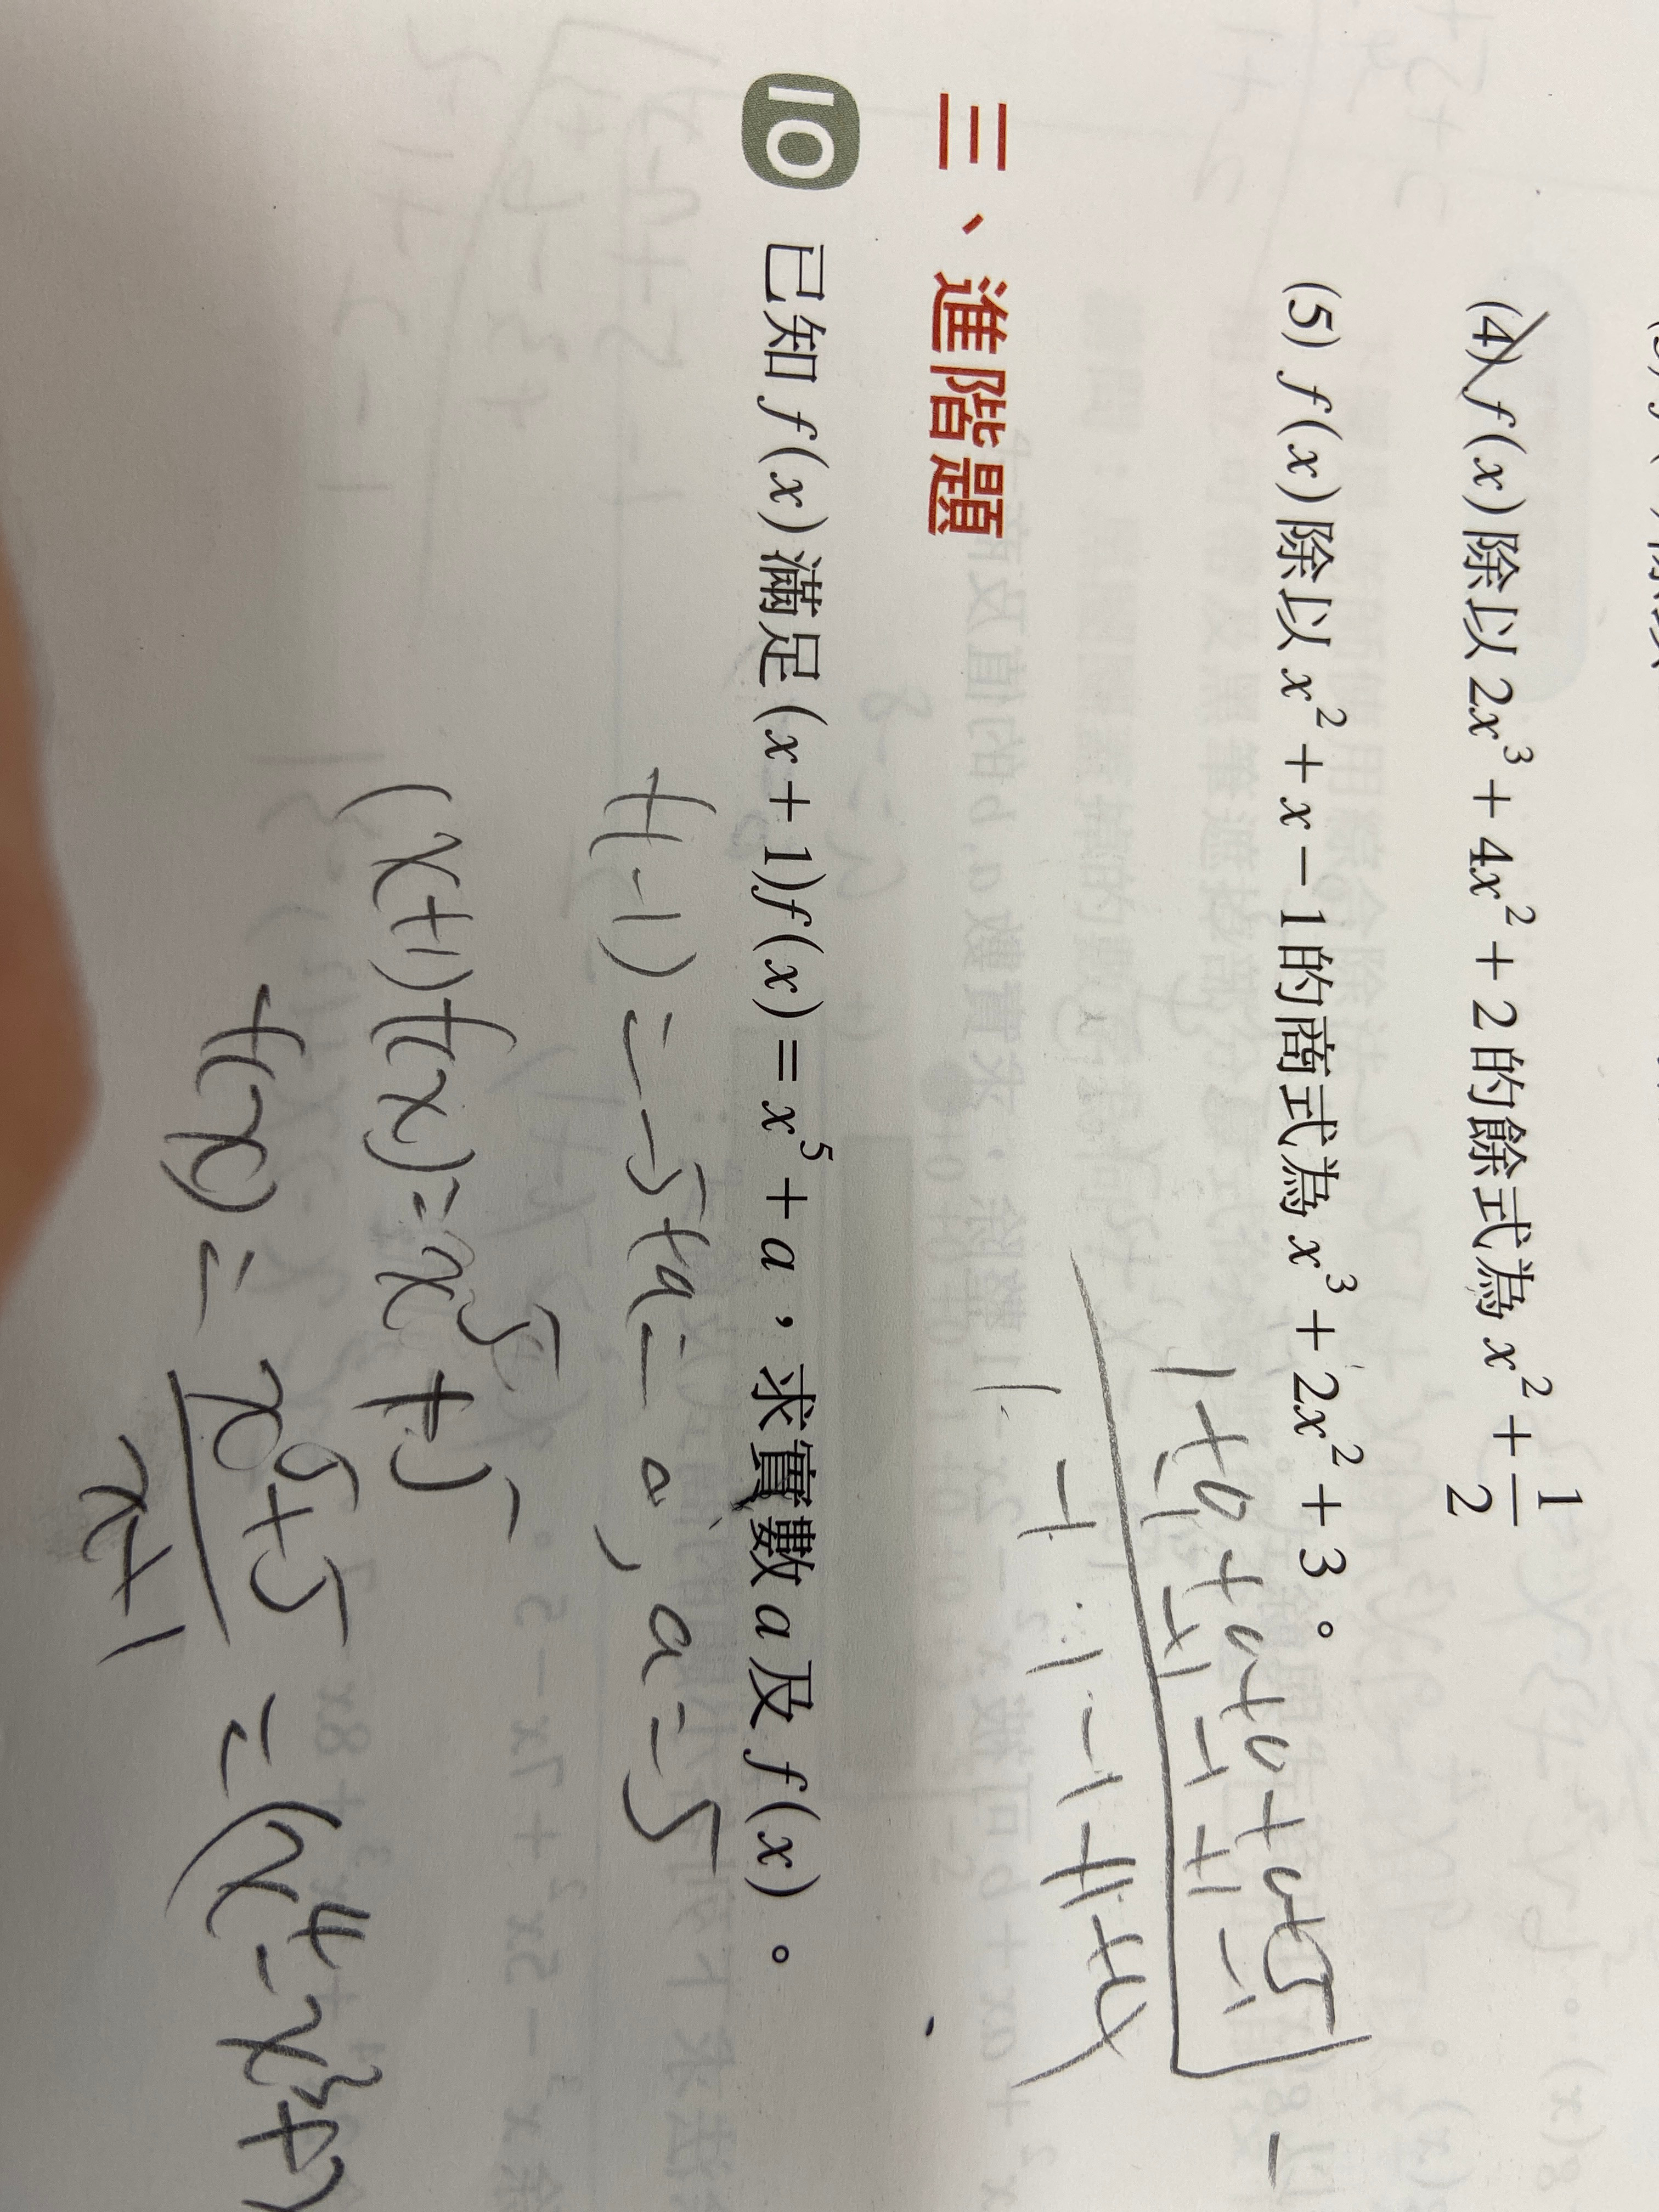 (4) f(x)除以2x³+4x²+2的餘式為x²+1/2
(5) f(x)除以x²+x−1的商式為x³+2x²+3。
1+0+0+0+0+5
-1 +1 -1 +1 -1
三、進階題
10 已知f(x)滿足(x+1)f(x)=x⁵+a,求實數a及f(x)。
f(-1)=-5+a=0, a=5
(x+1)f(x)=x⁵+5
f(x)=x⁵+5/x+1=(x⁴-x³+